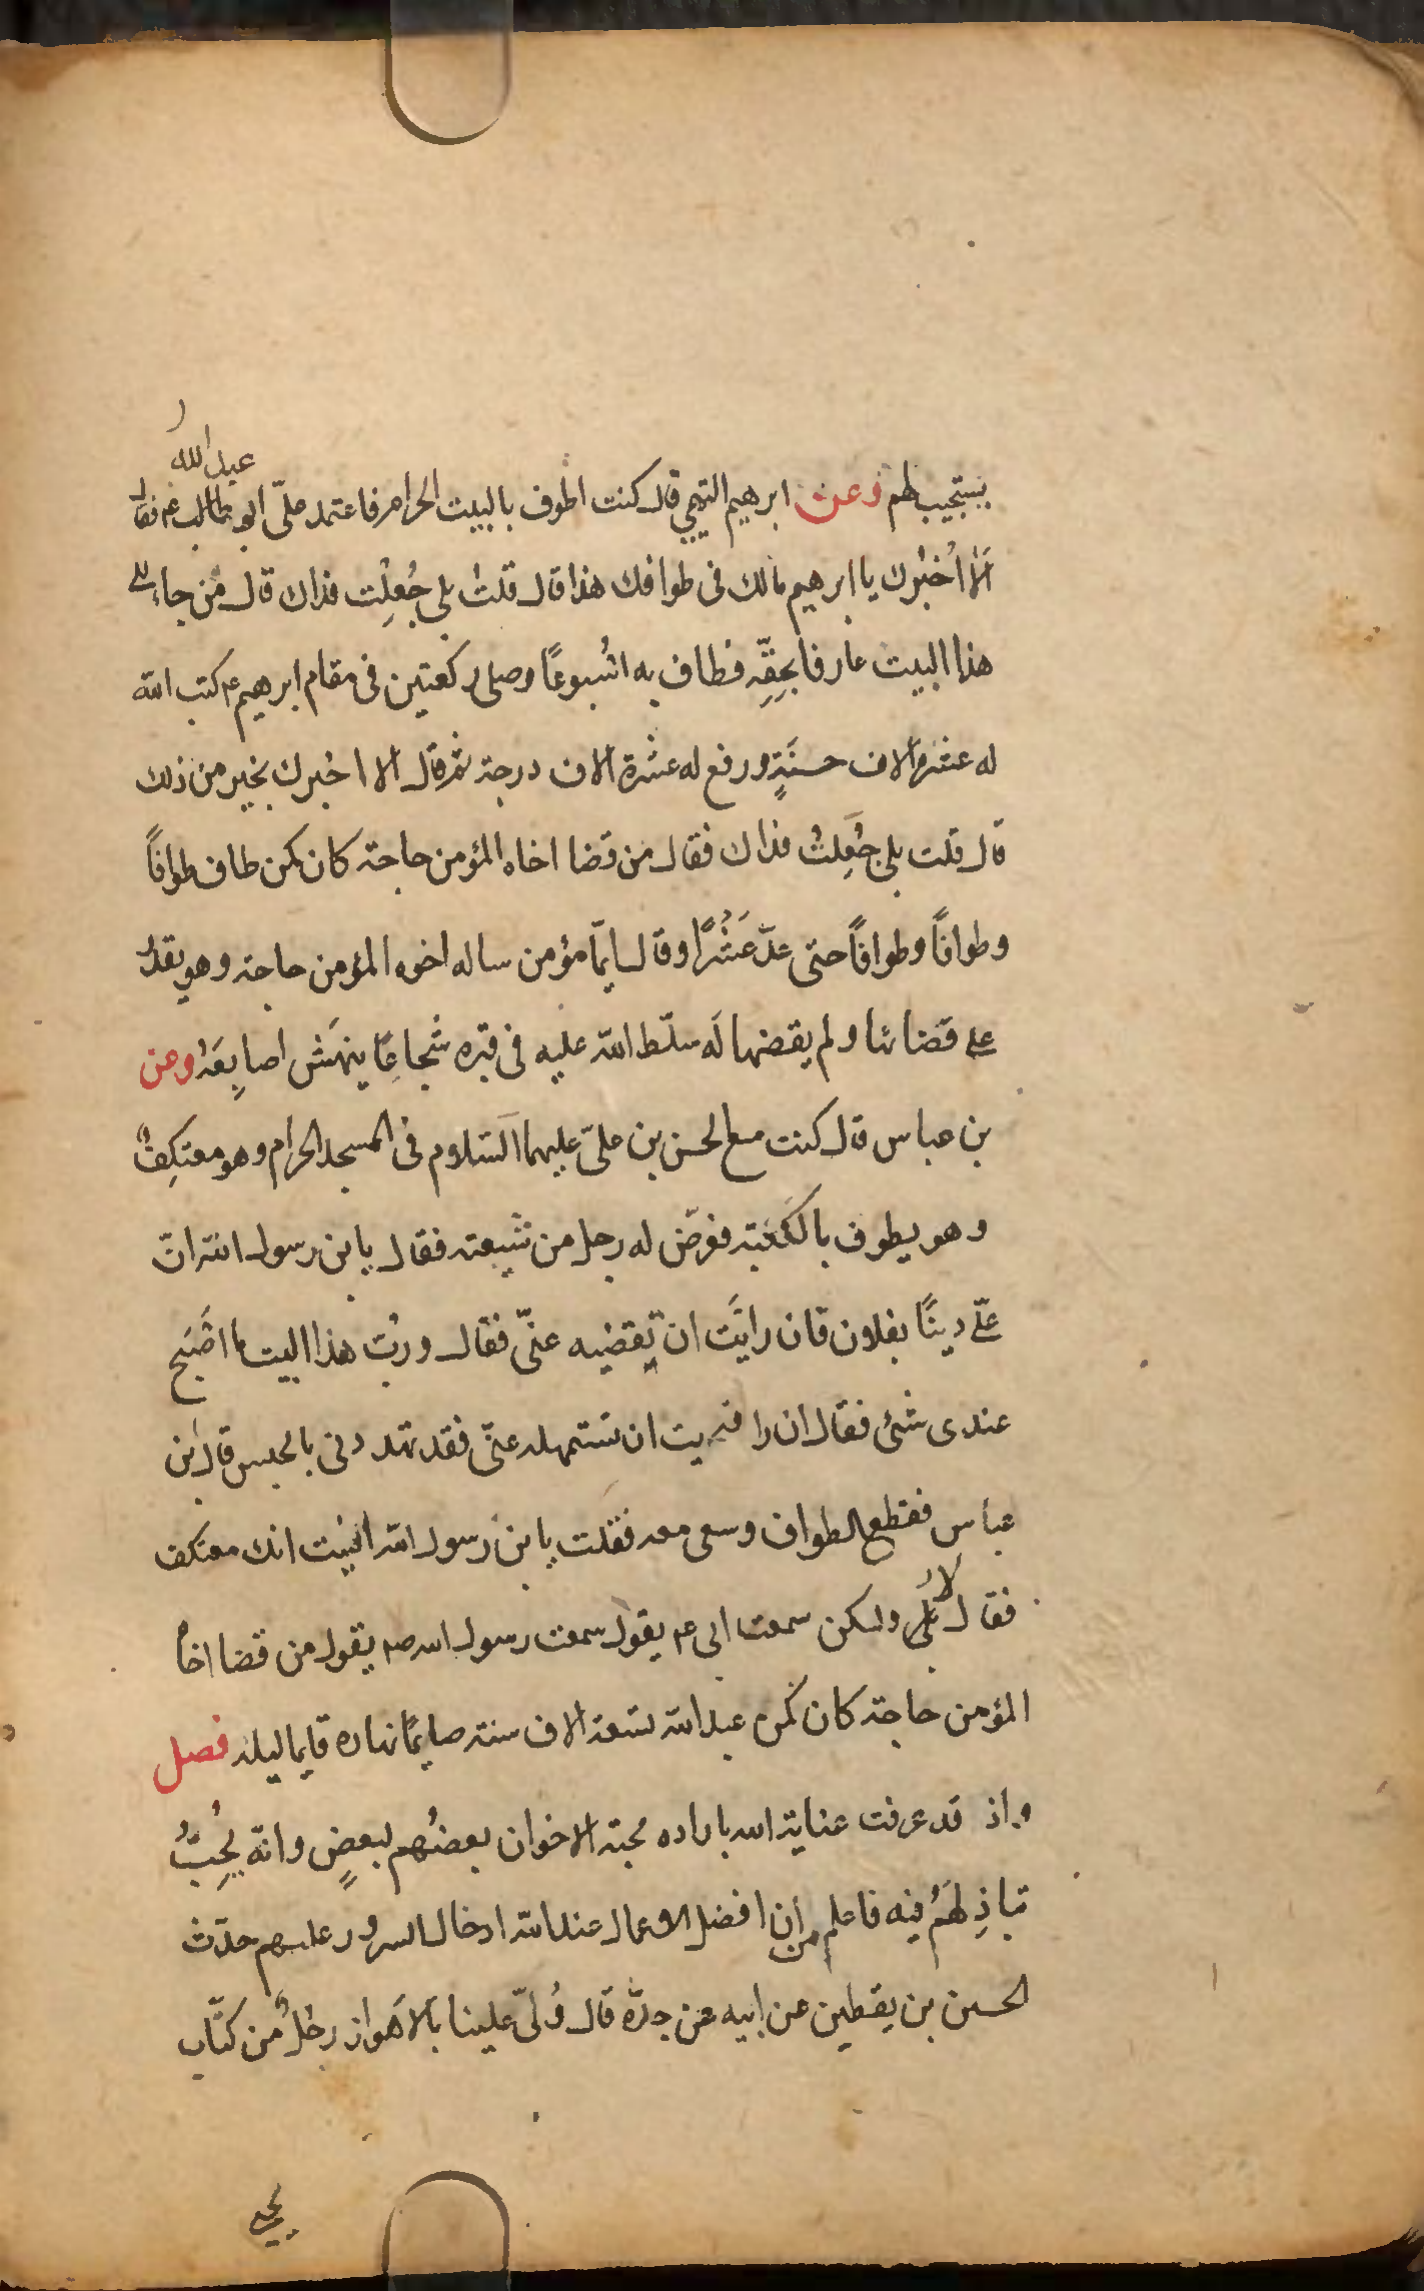 عبد الله
يستجيب لهم وعن ابرهيم التيمي قال كنت اطوف بالبيت الحرام فاعتمد عليّ ابو طالب ع م فقال
اَلَا اُخبُرك يا ابرهيم مالك فى طوافك هذا قال قلتُ بلى جُعِلِت فداك قال مَن جاء الى
هذا البيت عارفا بحِقّهِ فطاف به اُسُبوعًا وصلى ركعتين فى مقام ابرهيم ع م كتب الله
له عشرة آلاف حسنَةٍ ورفع له عشرة الاف درجة ثم قال الا اخبرك بخير من ذلك
قال قلت بلى جُعِلِتُ فداك فقال من قضا اخاه المؤمن حاجته كان كمن طاف طوافاً
وطوافاً وطوافاً حتى عدّ عَشُرًا وقال ايّما مؤمن ساله اخوه المؤمن حاجته وهو يقدر
على قضائها ولم يقضها لَه سلّط الله عليه فى قبره شجاعًا ينهَش اصابِعَه وعن
بن عباس قال كنت مع الحسن بن عليّ عليهما السَلام فى المسجد الحرام وهو معتكِفٌ
وهو يطوف بالكَعَبة فعرّض له رجل من شيعته فقال يابن رسول الله انّ
عَليّ دينًا بفلان فان رايَت ان تقضيه عنّى فقال وربّ هذا البيت ما اصَبَح
عندى شئ فقال ان رايت ان تستمهله عنّى فقد تهددنى بالحبس قال بن
عباس فقطع الطواف وسعى معه فقلت يابن رسول الله انسيت انك معتكف
فقال لا بَلى ولكن سمعت ابى ع م يقول سمعت رسول الله ص م يقول من قضا اخاهُ
المؤمن حاجته كان كمن عبد الله تسعة الاف سنة صايمًا نهاره قايما ليله فصل
واذ قد عرفت عناية الله باراده محبة الاخوان بعضُهم لبعضٍ وانّه يُحِبُّ
تباذِلهَمُ فيه فاعلم ان من افضل الاعمال عند الله ادخال السرور عليهم حدّث
الحسين بن يقطين عن ابيه عن جدّه قال وُلّى علينا بالاَهَواز رجُلٌ من كتّاب
يحيى